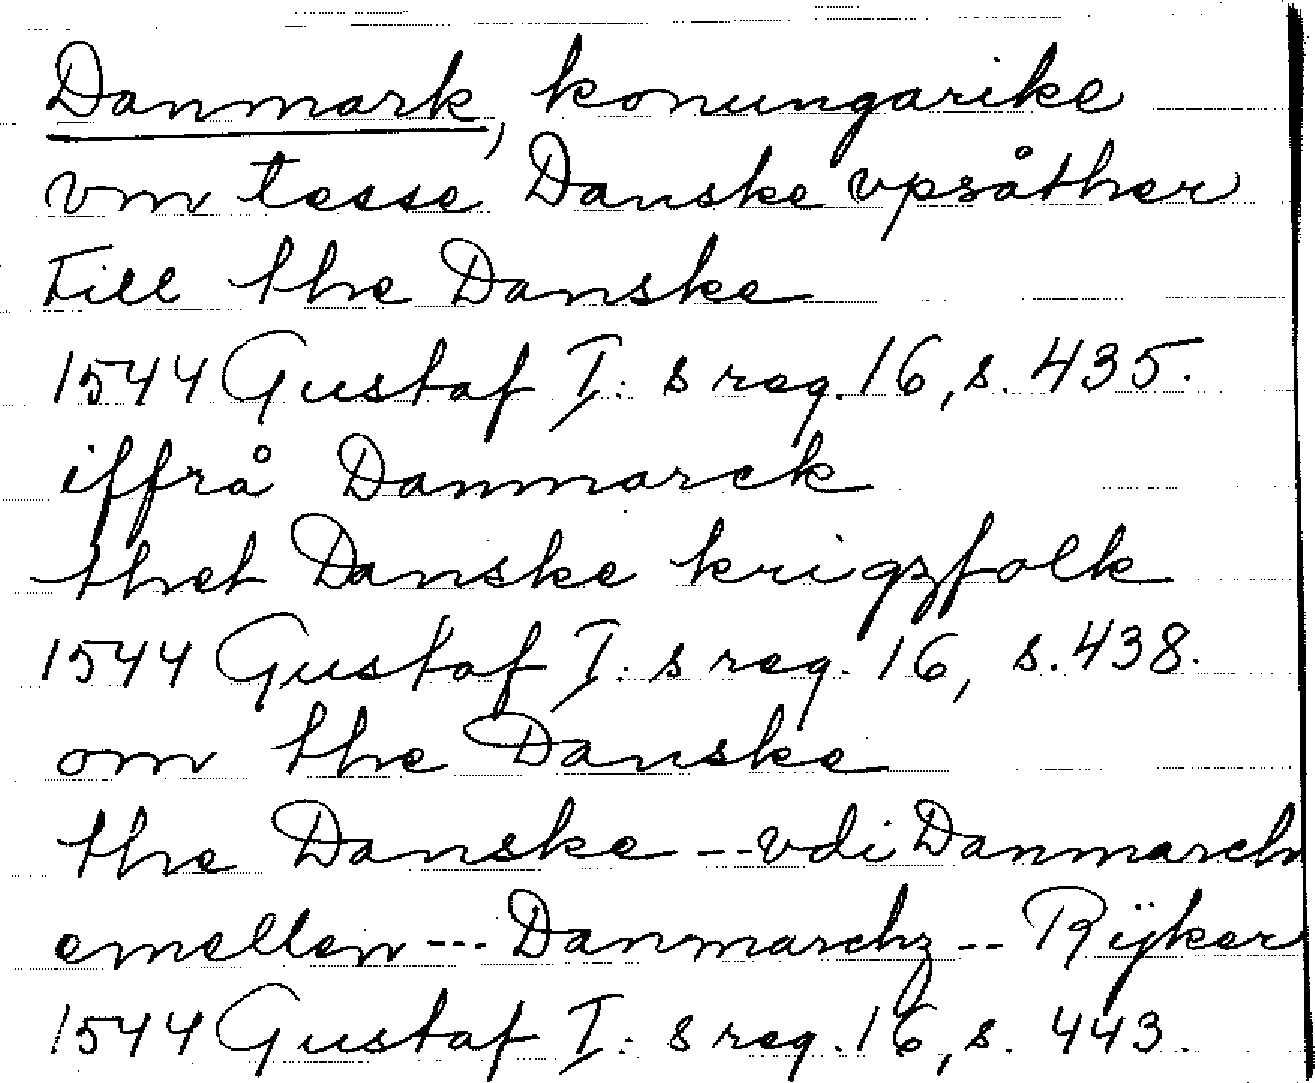 Danmark, konungarike
vm tesse Danske vpsåther
Till the Danske
1544 Gustaf I:s reg. 16, s. 435.
iffrå Danmarck
thet Danske krigzfolk
1544 Gustaf I:s reg. 16, s. 438.
om the Danske
the Danske -- vdi Danmarch
emellen --- Danmarchz -- Rÿker
1544 Gustaf I:s reg. 16, s. 443.